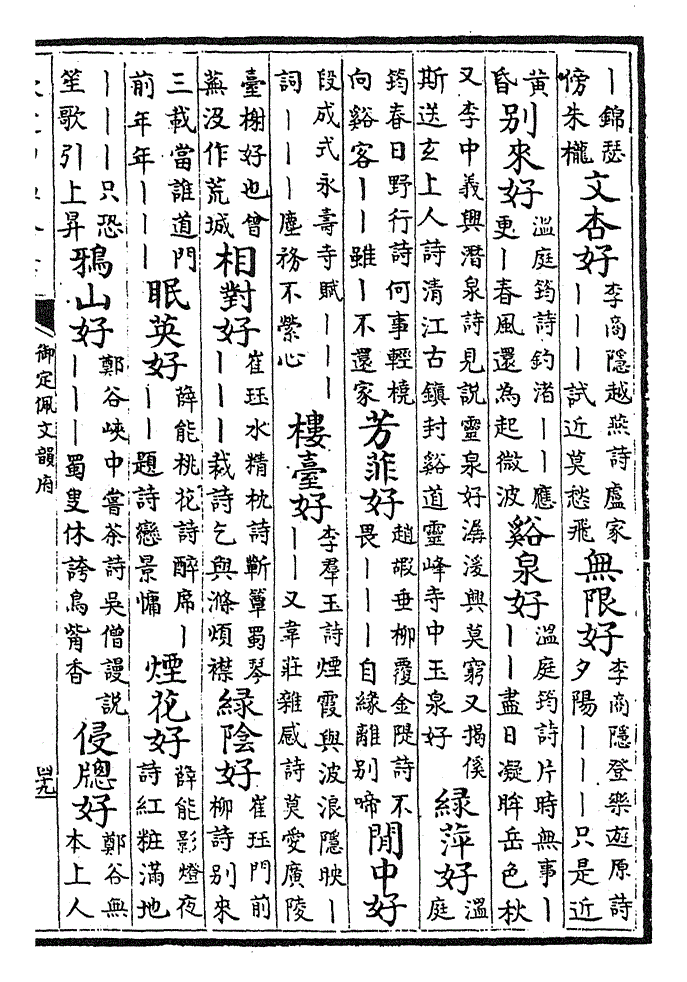 丨錦瑟傍朱櫳 文杏好 李商隱越燕詩盧家丨丨丨試近莫愁飛 無限好 李商隱登樂遊原詩夕陽丨丨丨只是近
黃昏 别來好 溫庭筠詩釣渚丨丨應更丨春風還為起微波 谿泉好 溫庭筠詩片時無事丨丨丨盡日凝眸岳色秋
又李中義興潛泉詩見説靈泉好潺湲興莫窮又揭傒斯送玄上人詩清江古鎮封谿道靈峰寺中玉泉好 緑萍好 溫庭
筠春日野行詩何事輕橈向谿客丨丨雖丨不還家 芳菲好 趙嘏垂柳覆金隄詩不畏丨丨丨自緣離别啼 閒中好
段成式永壽寺賦丨丨丨詞丨丨丨塵務不縈心 樓臺好 李羣玉詩煙霞與波浪隱映丨丨丨又韋莊雜感詩莫愛廣陵
臺榭好也曾蕪沒作荒城 相對好 崔珏水精枕詩蘄簟蜀琴丨丨丨裁詩乞與滌煩襟 緑陰好 崔珏門前柳詩别來
三載當誰道門前年年丨丨丨 眠英好 薛能桃花詩醉席丨丨丨題詩戀景慵 煙花好 薛能影燈夜詩紅粧滿地
丨丨丨只恐笙歌引上昇 鴉山好 鄭谷峽中嘗茶詩吳僧謾説丨丨丨蜀叟休誇鳥觜香 侵牎好 鄭谷無本上人
御定佩文韻府